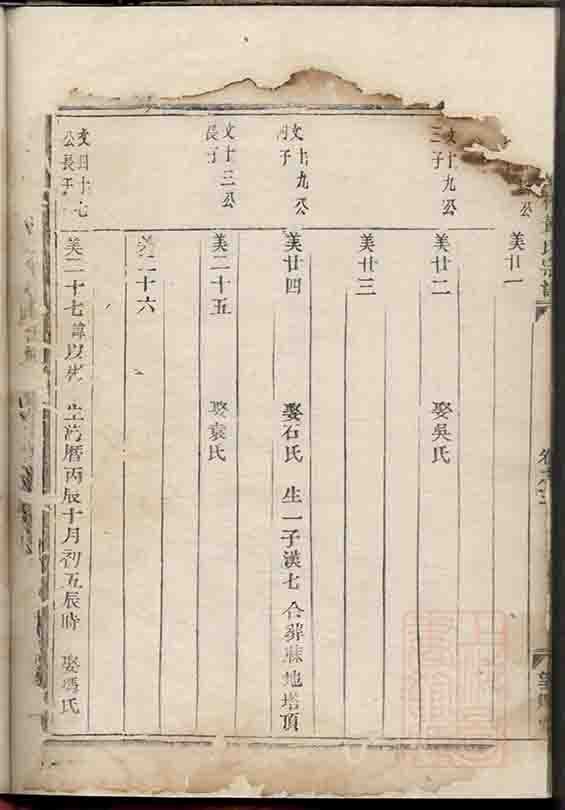 公
美廿一
文十九公
三子
美廿二
娶吳氏
美廿三
文十九公
四子
美廿四
娶石氏 生一子漢七 合葬蔴地塔頂
文十三公
長子
美二十五
娶袁氏
美二十六
文四十七
公長子
美二十七諱以先 生萬曆丙辰十月初五辰時 娶馮氏